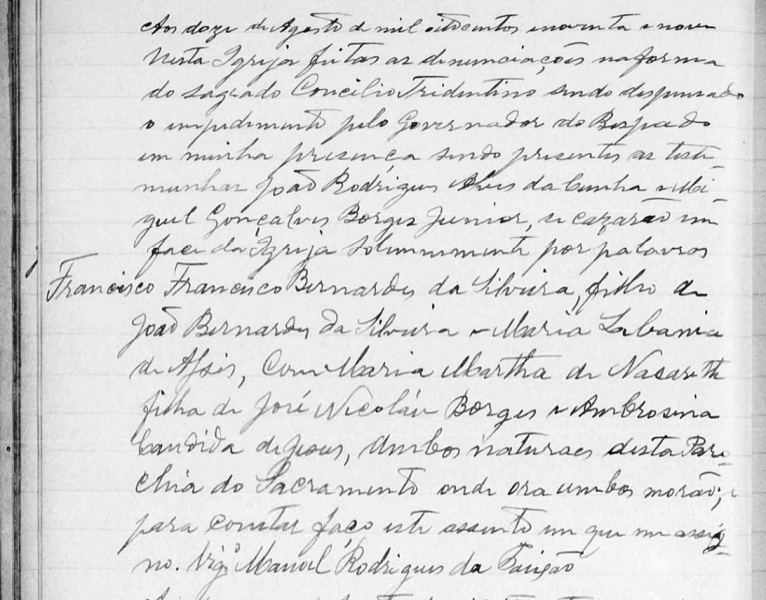 Aos doze de Agosto de mil oitocentos enoventa e nove
Nesta Igrija feitas as denunciações na forma
do sagrado Concilio Tridentino sendo despensado
o impedimento pelo Governador do Bispado
em minha presença sendo presentes as teste
munhas João Rodrigues Alves da Cunha e Mi
guel Gonçalves Borges Junior, se cazarão em
face da Igrija Solennemente por palavras
Francisco Francisco Bernardes da Silveira, filho de
João Bernardes da Silveira e Maria
de Assis, Com Maria Martha de Nasareth
filha de José Nicoláu Borges e Ambrosina
Candida de Jesus, Ambos naturaes desta Paro-
chia do Sacramento onde ora ambos morão; e
para constar faço este assento em que me assig-
no. Vigº Manoel Rodrigues da Paixão